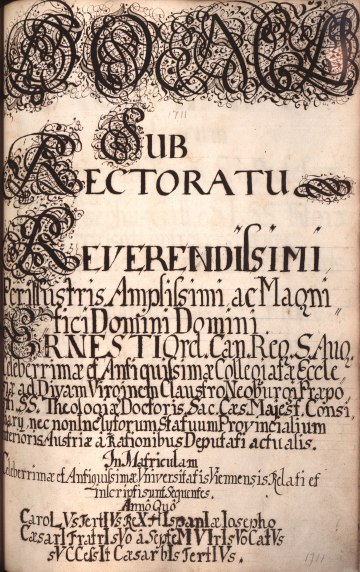 1711
SUB
RECTORATU
REVERENDISSIMI
Perillustris Amplissimi ac Magni
fici Domini Domini
ERNESTI Ord. Can. Reg. S. Aug.
Celeberrimæ et Antiquissimæ Collegiatæ Eccle
siæ ad Divam Virginem Claustro Neoburgi Præpo
siti, SS. Theologiæ Doctoris, Sac. Cæs. Majest. Consi
liarÿ, nec non Inclytorum Statuum Provincialium
Inferioris Austriæ à Rationibus Deputati actualis.
In Matriculam
Celeberrimæ et Antiquissimæ Universitatis Viennensis Relati et
inscripti sunt Sequentes.
Anno Quo
CaroLVs TertIVs ReX HIspanIæ Iosepho
CæsarI FratrI sVo à septeMVIrIs VoCatVs
sVCCessIt Cæsar hIs TertIVs.
1711